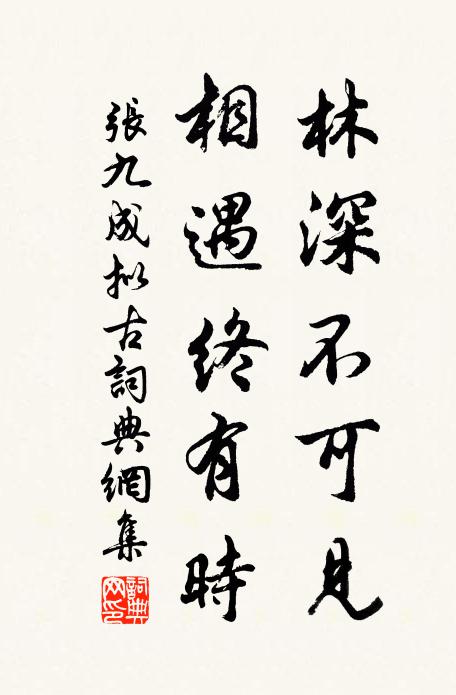 林深不可見
相遇終有時
張九成拟古詞典網集
詞典網印